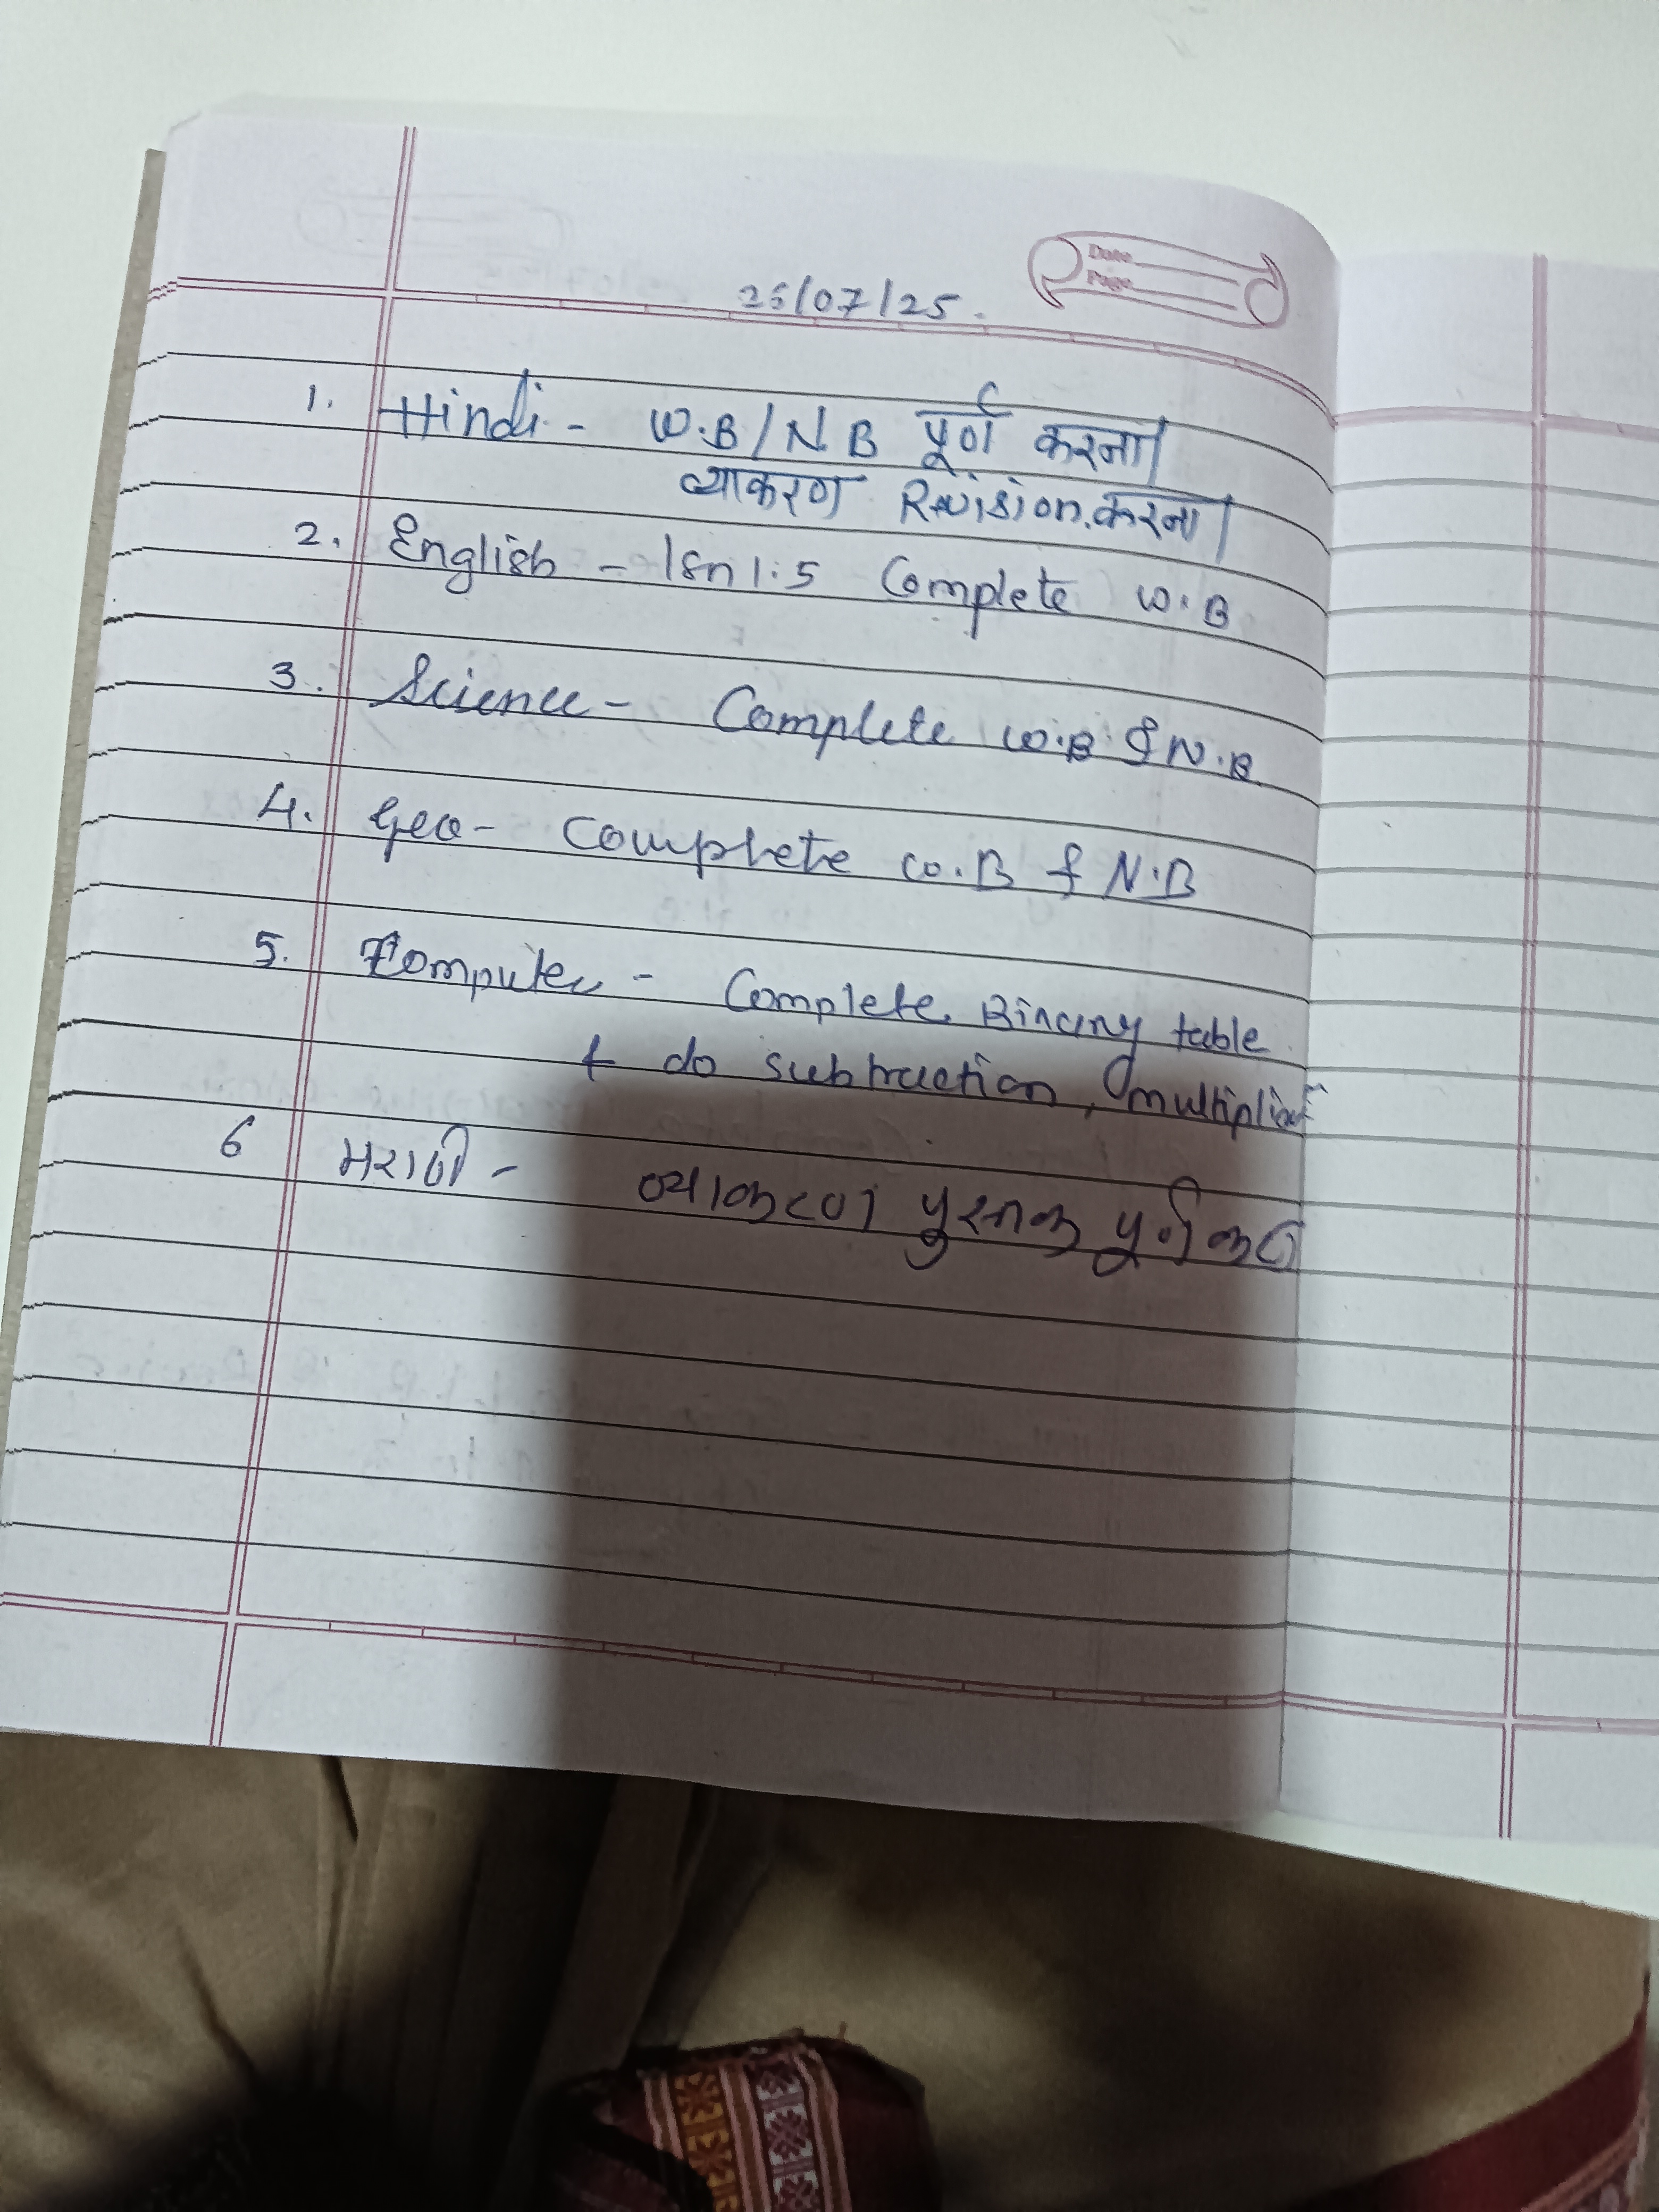 Date
Page
25/07/25.
1. Hindi - W.B/NB पूर्ण करना।
व्याकरण Revision करना।
2. English - lsn 1.5 Complete W.B
3. Science - Complete W.B & N.B
4. Geo - Complete W.B & N.B
5. Computer - Complete Binary table
& do subtraction, multiplicat
6 मराठी - व्याकरण पुस्तक पुर्ण करा